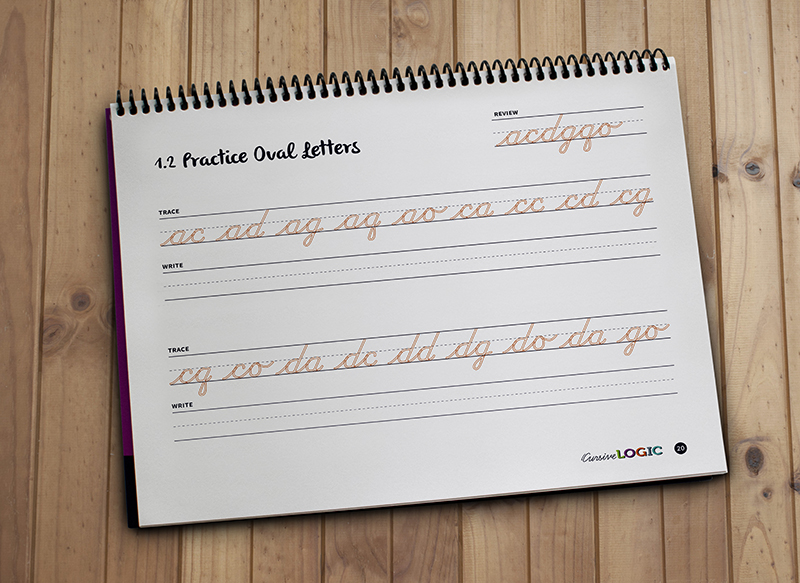 REVIEW
acdgqo
1.2 Practice Oval Letters
TRACE
ac ad ag aq ao ca cc cd cg
WRITE
TRACE
cq co da dc dd dg do da go
WRITE
CursiveLOGIC 20